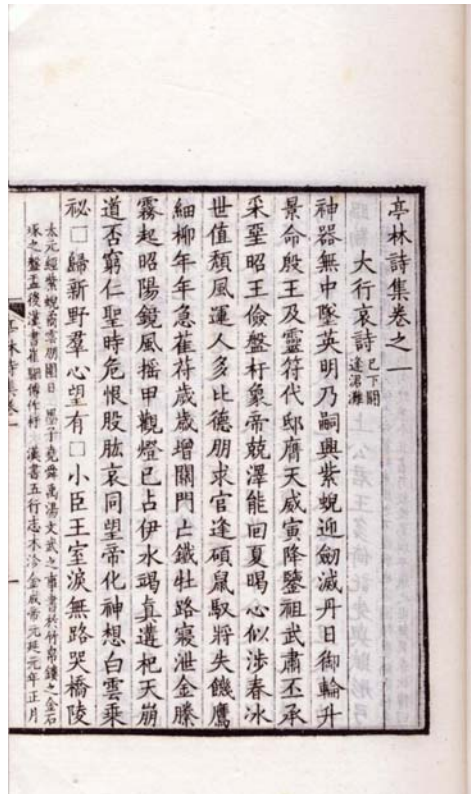 亭林詩集卷之一
大行哀詩 已下閼
逢涒灘
神器無中墜英明乃嗣興紫蜺迎劒滅丹日御輪升
景命殷王及靈符代邸膺天威寅降鑒祖武肅丕承
采堊昭王儉盤杅象帝兢澤能回夏暍心似涉春冰
世值頹風運人多比德朋求官逢碩鼠馭將失饑鷹
細柳年年急萑苻歲歲增關門亡鐵牡路寢泄金縢
霧起昭陽鏡風摇甲觀燈已占伊水竭真遘杞天崩
道否窮仁聖時危恨股肱哀同望帝化神想白雲乘
祕□歸新野羣心望有□小臣王室淚無路哭橋陵
太元經紫蜺矞雲朋圍日 墨子堯舜禹湯文武之事書於竹帛鏤之金石
琢之盤盂後漢書崔駰傳作杅 漢書五行志木沴金成帝元延元年正月